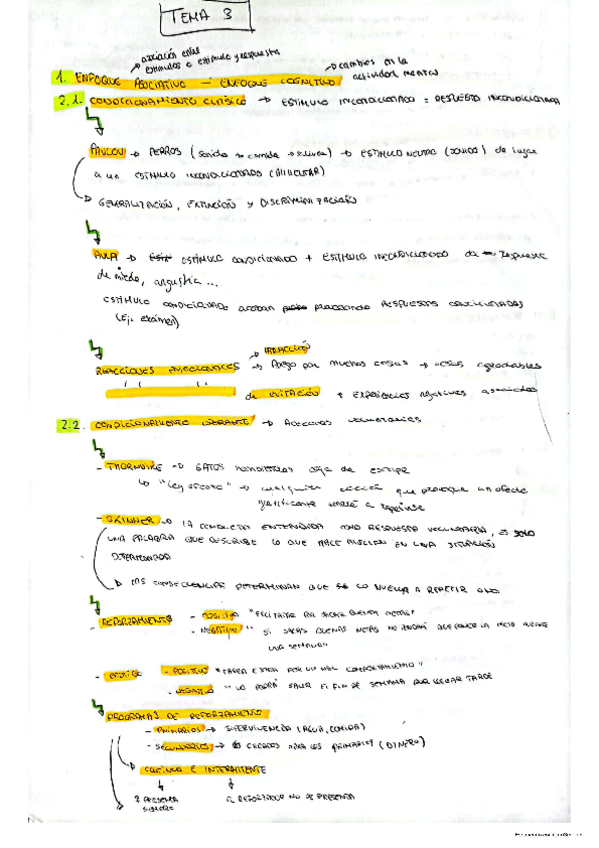 TEMA 3
asociación entre
estímulos o estímulo y respuesta
cambios en la
actividad mental
1. ENFOQUE ASOCIATIVO - ENFOQUE COGNITIVO
2.1. CONDICIONAMIENTO CLÁSICO → ESTÍMULO INCONDICIONADO = RESPUESTA INCONDICIONADA
PAVLOV → PERROS (sonido → comida → saliva) → ESTÍMULO NEUTRO (SONIDO) da lugar
a un ESTÍMULO INCONDICIONADO
GENERALIZACIÓN, EXTINCIÓN Y DISCRIMINACIÓN
AULA → ESTÍMULO CONDICIONADO + ESTÍMULO INCONDICIONADO da respuesta
de miedo, angustia ...
ESTÍMULO CONDICIONADO acaban provocando RESPUESTAS CONDICIONADAS
(Ej. examen)
REACCIONES EMOCIONALES → Apego por muchas cosas → cosas agradables
de EVITACIÓN + EXPERIENCIAS negativas asociadas
2.2. CONDICIONAMIENTO OPERANTE → Acciones voluntarias
- THORNDIKE → GATOS caja de escape
→ "Ley efecto" → cualquier acción que produzca un efecto
gratificante a repetirse
- SKINNER → LA CONDUCTA ENTENDIDA COMO RESPUESTA VOLUNTARIA, ES SOLO
UNA PALABRA QUE DESCRIBE LO QUE HACE ALGUIEN EN UNA SITUACIÓN
DETERMINADA
LAS CONSECUENCIAS DETERMINAN QUE SE LO VUELVA A REPETIR O NO
- REFORZAMIENTO - POSITIVO "FELICITAR POR SACAR BUENAS NOTAS"
- NEGATIVO "SI SACAS BUENAS NOTAS NO TENDRÁ QUE LA MESA
UNA SEMANA"
- CASTIGO - POSITIVO "TAREA EXTRA POR UN MAL COMPORTAMIENTO"
- NEGATIVO "NO PODRÁ SALIR EL FIN DE SEMANA POR LLEGAR TARDE"
PROGRAMAS DE REFORZAMIENTO
- PRIMARIOS → SUPERVIVENCIA (AGUA, COMIDA)
- SECUNDARIOS → PARA LOS PRIMARIOS (DINERO)
CONTINUA E INTERMITENTE
PRESENTA
SIEMPRE
EL REFORZADOR NO SE PRESENTA